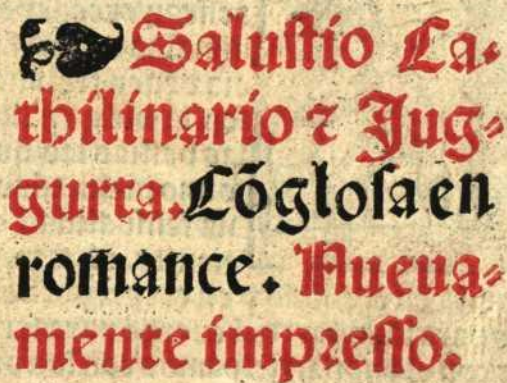 ❧Saluſtio Ca⸗
thilinario ⁊ Jug⸗
gurta. Cõ gloſa en
romance. Nueua⸗
mente impꝛeſſo.